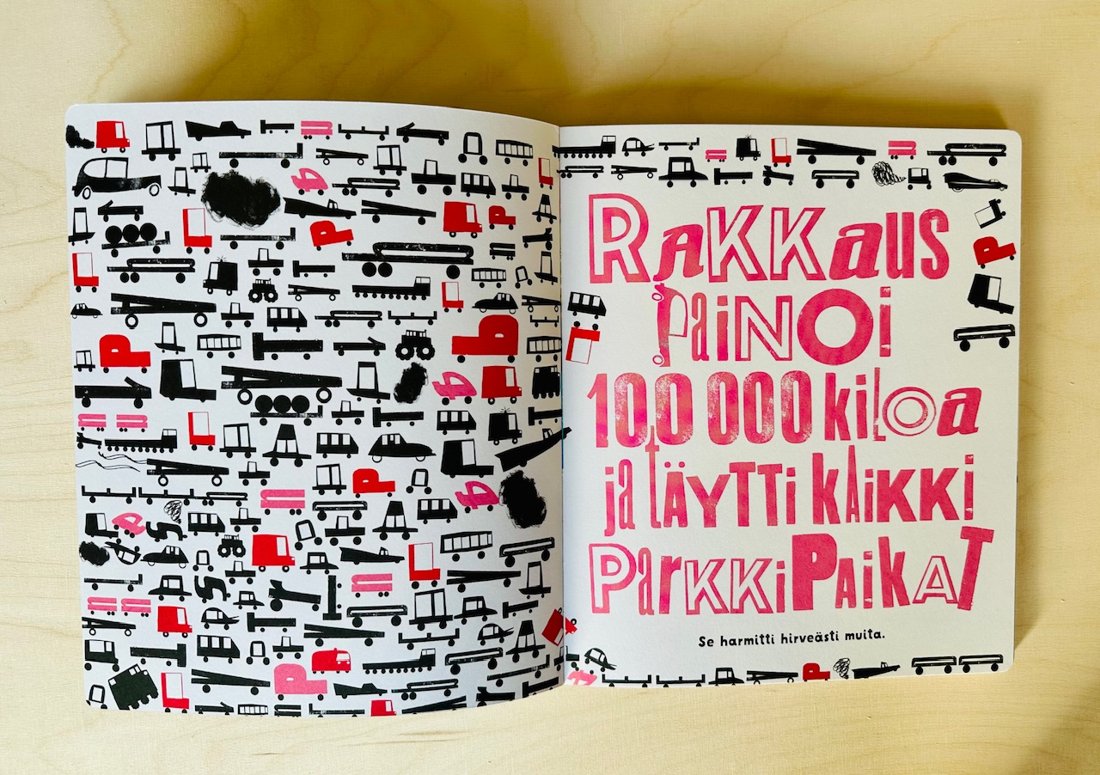 RAKKaUS
PaiNOi
100 000 kiLOa
ja tÄYTTi kAiKKi
ParKKiPAiKAT
Se harmitti hirveästi muita.